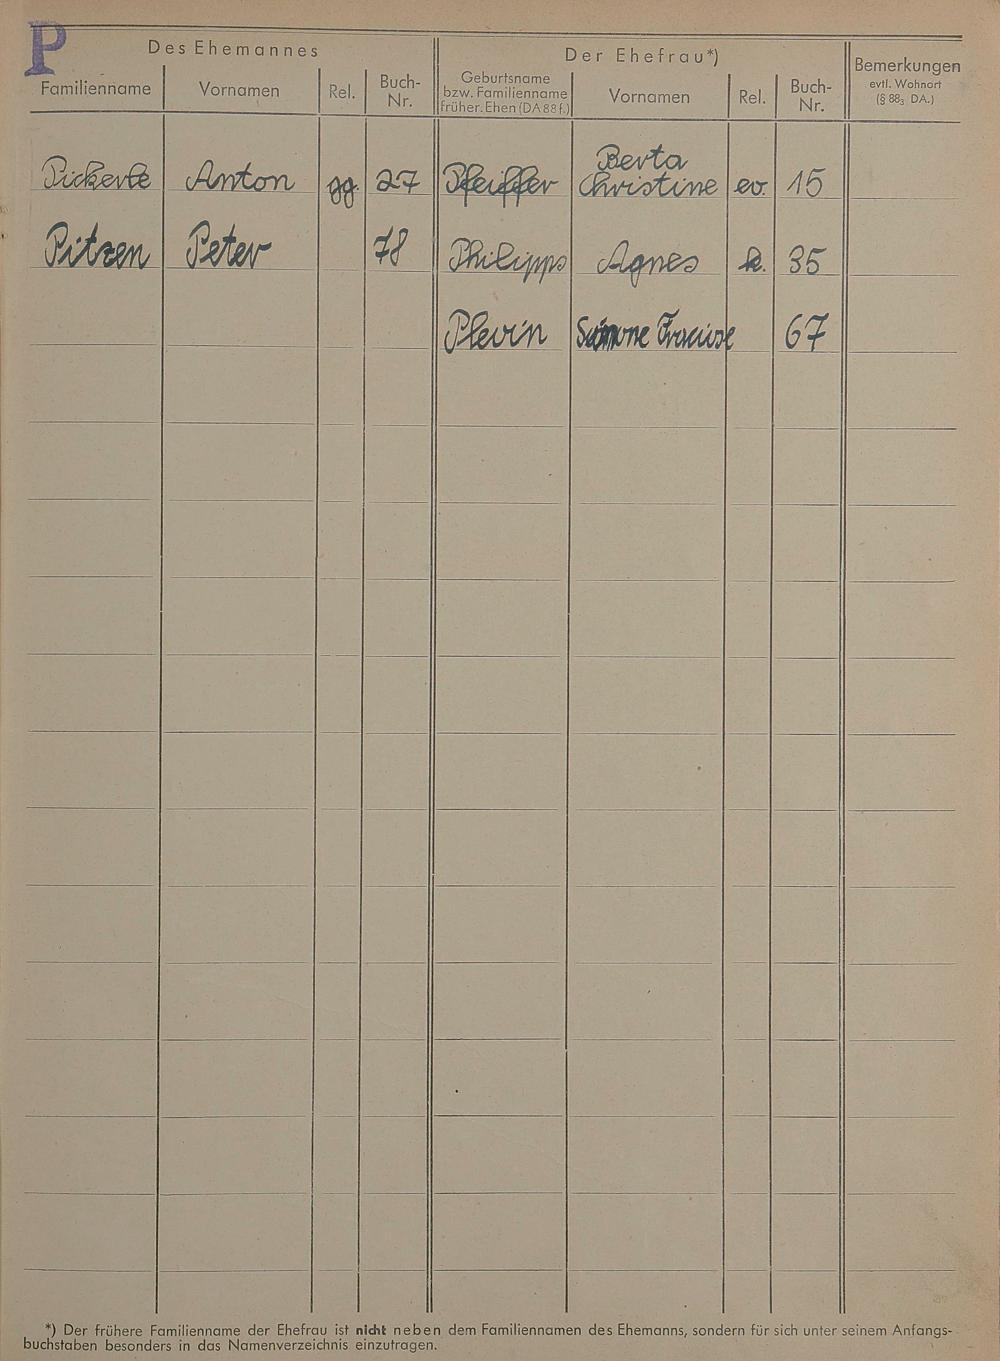 P
Des Ehemannes
Der Ehefrau*)
Bemerkungen
evtl. Wohnort
(§ 88₃ DA.)
Familienname
Vornamen
Rel.
Buch-
Nr.
Geburtsname
bzw. Familienname
früher. Ehen (DA 88 f.)
Vornamen
Rel.
Buch-
Nr.
Berta
Pickerle Anton gg. 27 Pfeiffer Christine ev. 15
Pitzen Peter 78 Philipps Agnes k. 35
Plevin Simone 67
*) Der frühere Familienname der Ehefrau ist nicht neben dem Familiennamen des Ehemanns, sondern für sich unter seinem Anfangs-
buchstaben besonders in das Namenverzeichnis einzutragen.